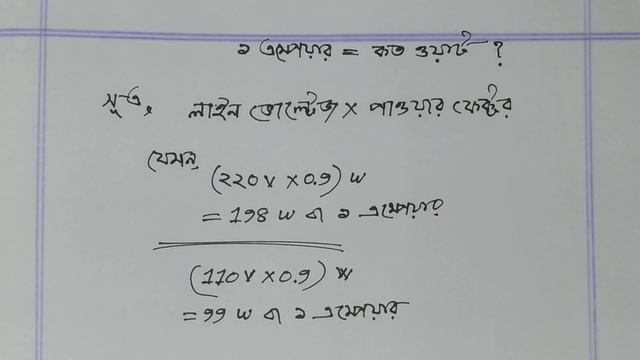 ১ এম্পেয়ার = কত ওয়াট ?
সূত্র,
লাইন ভোল্টেজ x পাওয়ার ফেক্টর
যেমন,
(220V x 0.9) W
= 198 W বা ১ এম্পেয়ার
(110V x 0.9) W
= 99 W বা ১ এম্পেয়ার